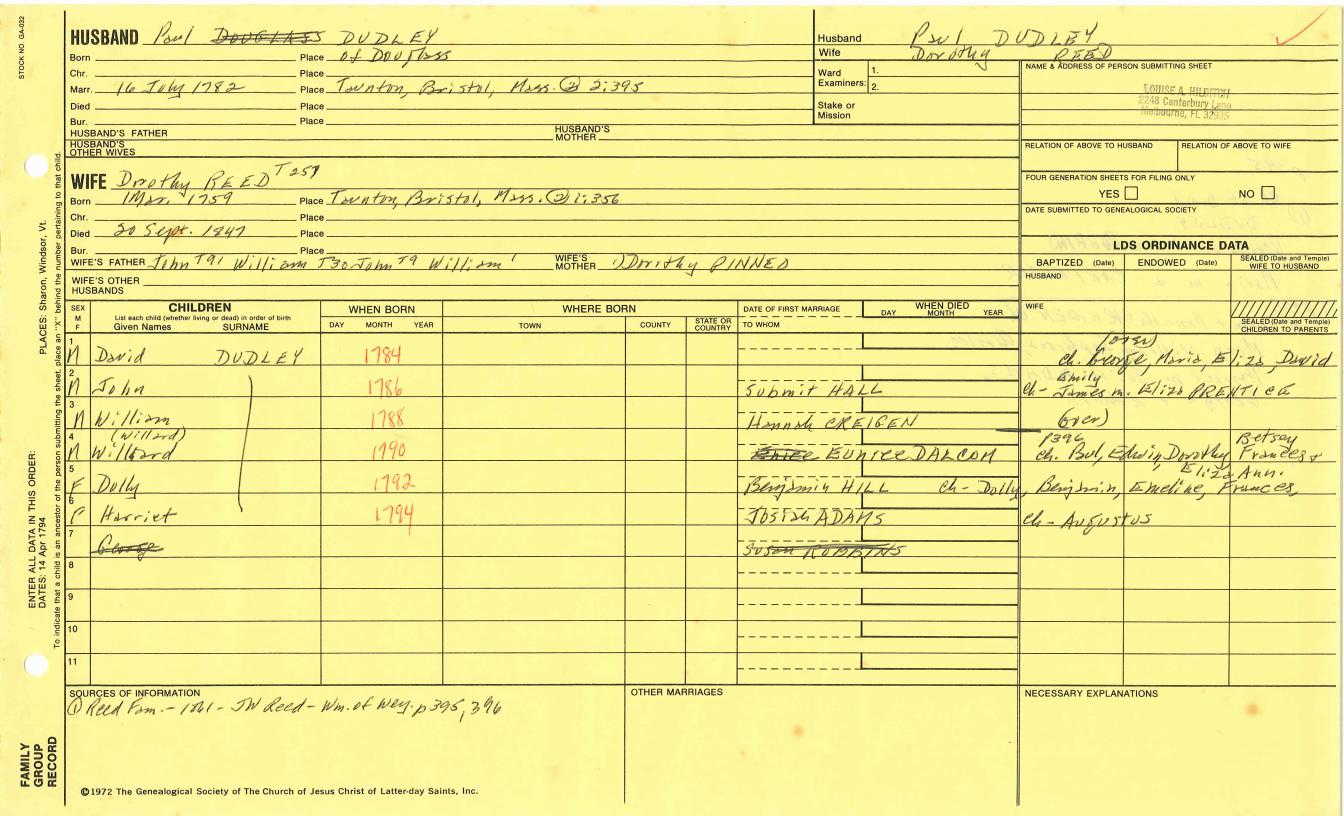 STOCK NO. GA-032
HUSBAND Paul DOUGLASS DUDLEY
Born Place of Douglass
Chr. Place
Marr. 16 July 1782 Place Taunton, Bristol, Mass. ② 2:395
Died Place
Bur. Place
HUSBAND'S FATHER HUSBAND'S MOTHER
HUSBAND'S OTHER WIVES
WIFE Dorothy REED T257
Born 1 Mar. 1759 Place Taunton, Bristol, Mass. ② 1:356
Chr. Place
Died 20 Sept. 1847 Place
Bur. Place
WIFE'S FATHER John T91 William T30 John T9 William 1 WIFE'S MOTHER 1) Dorothy PINNEO
WIFE'S OTHER HUSBANDS
Husband Paul DUDLEY
Wife Dorothy REED
Ward Examiners: 1.
2.
Stake or Mission
NAME & ADDRESS OF PERSON SUBMITTING SHEET
2248 Canterbury Lane
Melbourne, FL 32935
RELATION OF ABOVE TO HUSBAND RELATION OF ABOVE TO WIFE
FOUR GENERATION SHEETS FOR FILING ONLY
YES NO
DATE SUBMITTED TO GENEALOGICAL SOCIETY
LDS ORDINANCE DATA
BAPTIZED (Date) ENDOWED (Date) SEALED (Date and Temple) WIFE TO HUSBAND
HUSBAND
WIFE
SEALED (Date and Temple) CHILDREN TO PARENTS
SEX M F
CHILDREN
List each child (whether living or dead) in order of birth
Given Names SURNAME
WHEN BORN
DAY MONTH YEAR
WHERE BORN
TOWN COUNTY STATE OR COUNTRY
DATE OF FIRST MARRIAGE
TO WHOM
WHEN DIED
DAY MONTH YEAR
(over)
1 M David DUDLEY 1784 ch. George, Maria, Eliza, David
Emily
2 M John 1786 Submit HALL ch- James m. Eliza PRENTICE
3 M William 1788 Hannah CREIGEN (over)
(Willard)
p396 Betsey
4 M Willard 1790 Eunice EUNICE DALCOM ch. Edwin, Dorothy Frances +
Eliza Ann.
5 F Dolly 1792 Benjamin HILL ch- Dolly, Benjamin, Emeline, Frances,
6 F Harriet 1794 Josiah ADAMS ch- Augustus
7 George Susan ROBBINS
8
9
10
11
SOURCES OF INFORMATION
① Reed Fam. - 1861 - JW Reed - Wm. of Wey. p395, 396
OTHER MARRIAGES
NECESSARY EXPLANATIONS
©1972 The Genealogical Society of The Church of Jesus Christ of Latter-day Saints, Inc.
ENTER ALL DATA IN THIS ORDER:
DATES: 14 Apr 1794
PLACES: Sharon, Windsor, Vt.
To indicate that a child is an ancestor of the person submitting the sheet, place an "X" behind the number pertaining to that child.
FAMILY
GROUP
RECORD